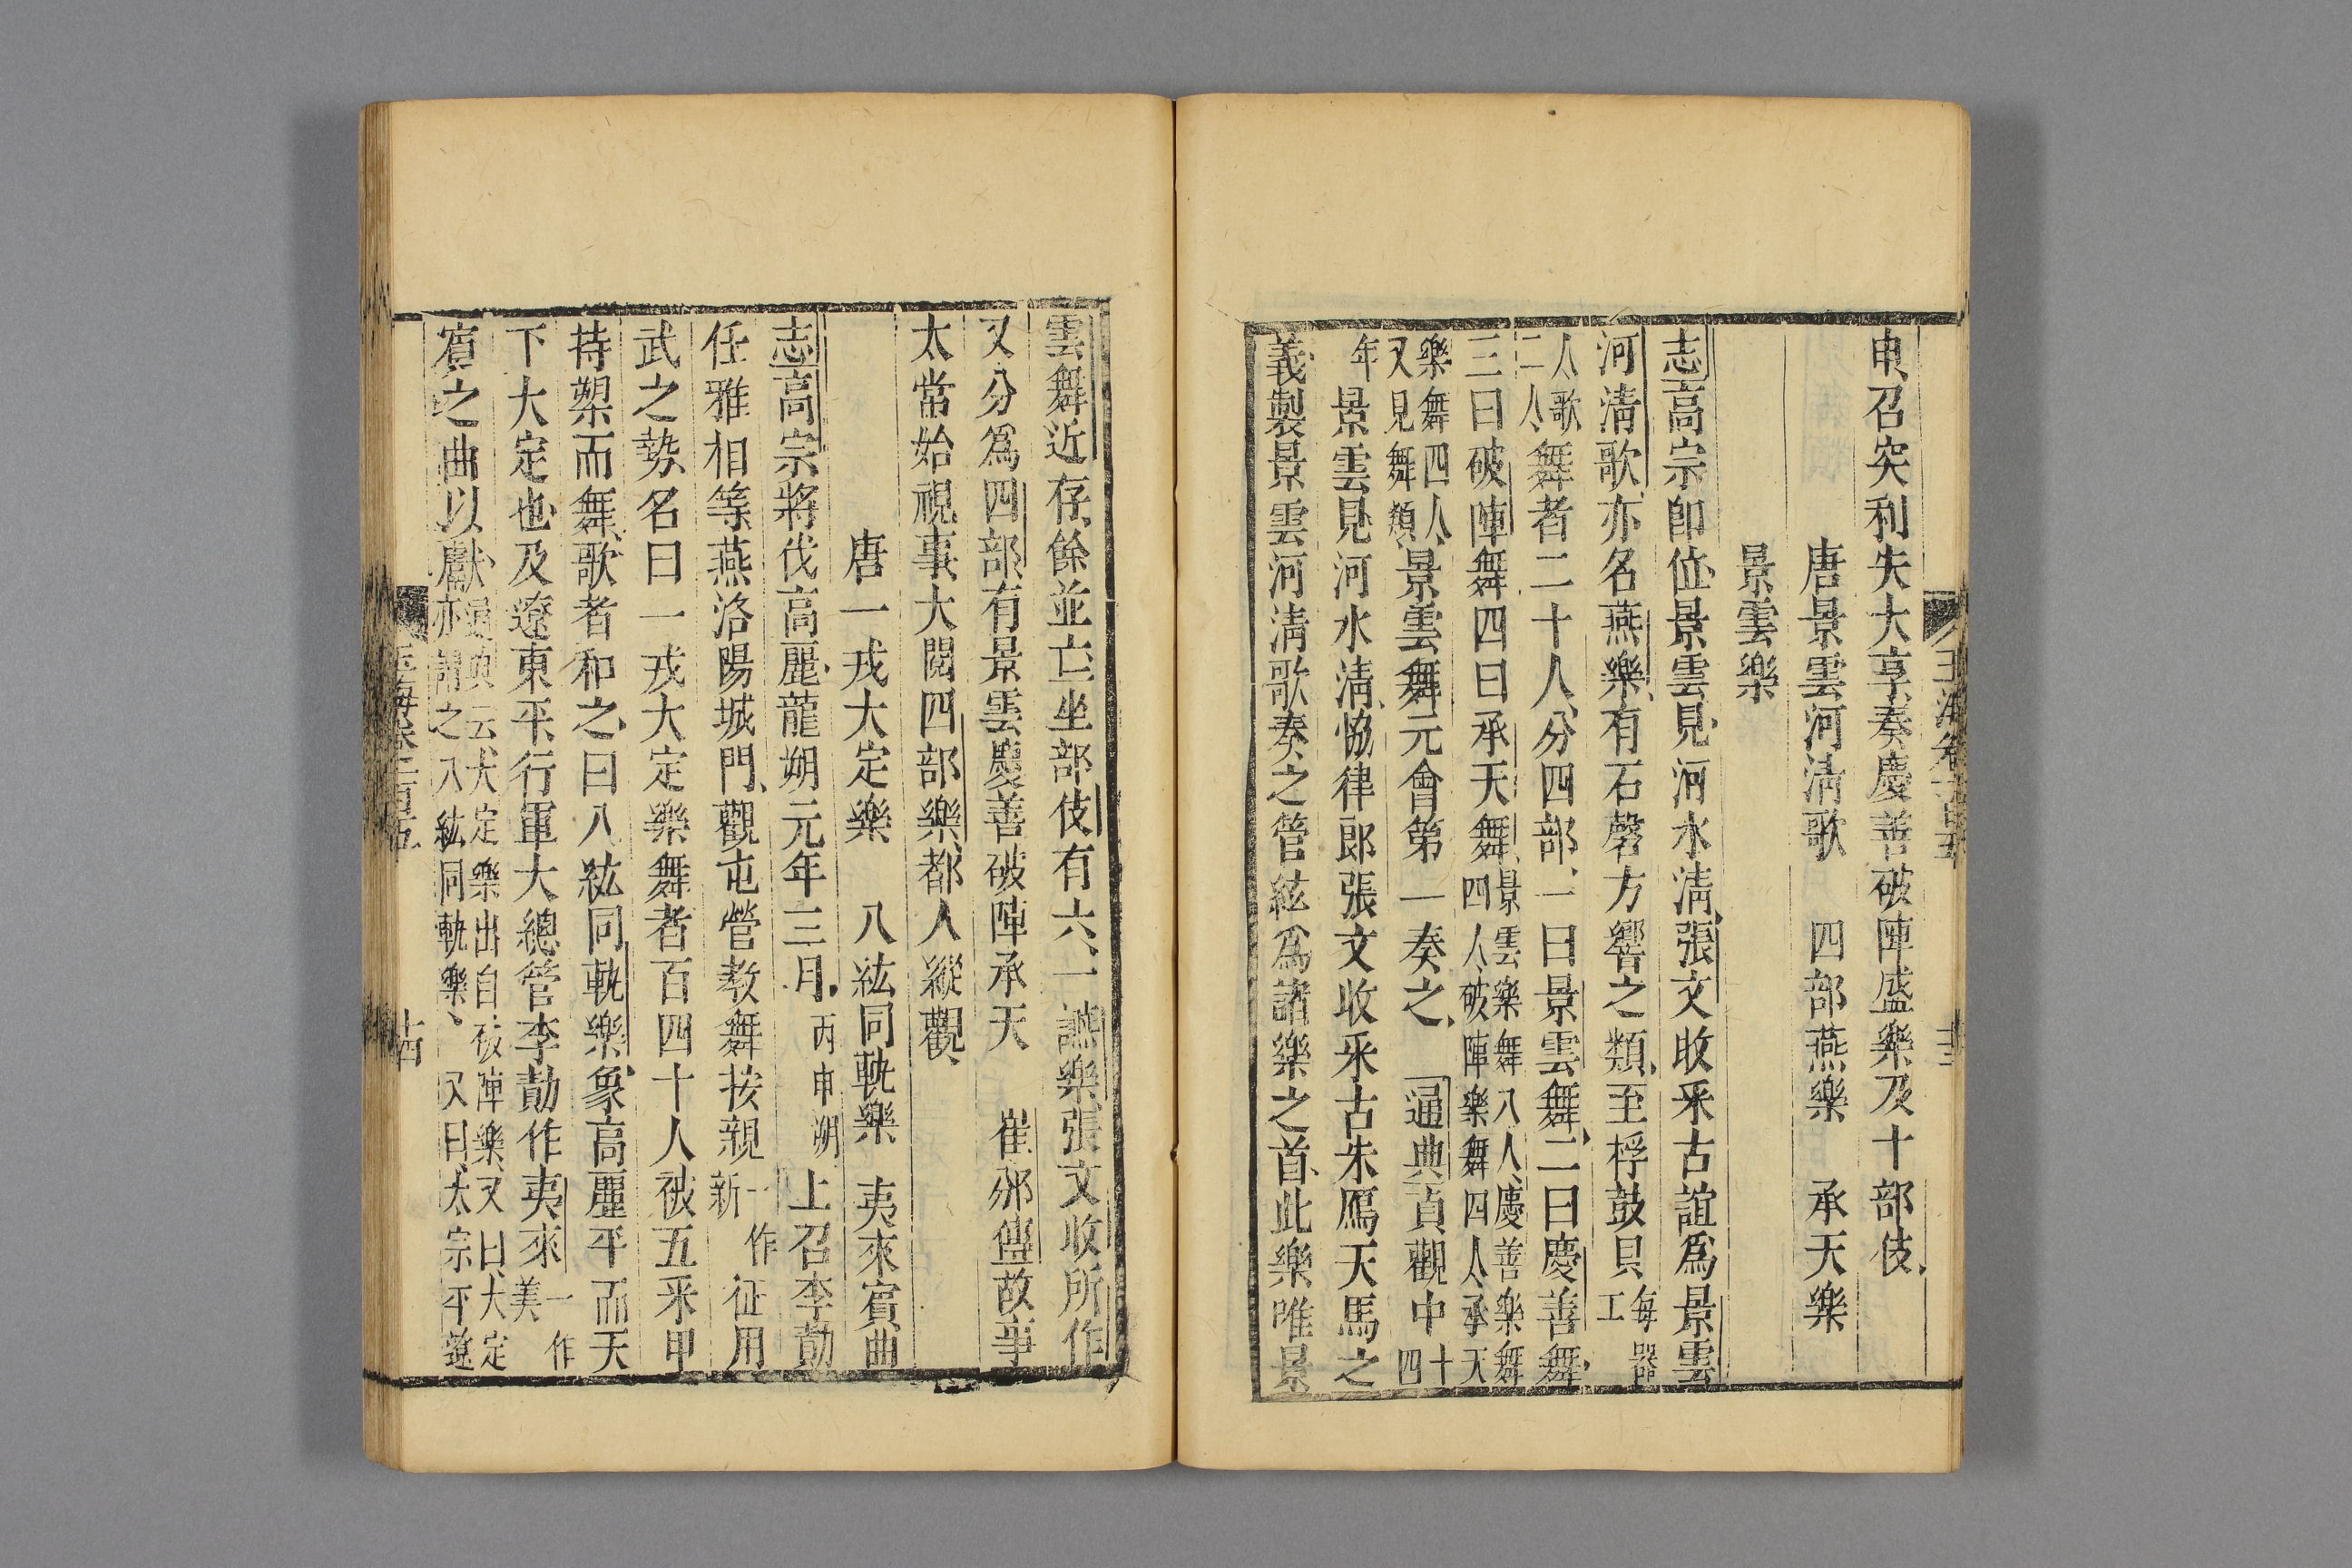 玉海卷一百五 十三
申召突利失大享奏慶善破陣盛樂及十部伎
唐景雲河淸歌 四部燕樂 承天樂
景雲樂
志高宗卽位景雲見河水淸張文收采古誼爲景雲
河淸歌亦名燕樂有石磬方響之類至桴鼓貝每器工
人歌二人舞者二十人分四部一曰景雲舞二曰慶善舞
三曰破陣舞四曰承天舞景雲樂舞八人慶善樂舞四人破陣樂舞四人承天
樂舞四人又見舞類景雲舞元會第一奏之 通典貞觀中十四
年景雲見河水淸協律郞張文收采古朱鴈天馬之
義製景雲河淸歌奏之管絃爲諸樂之首此樂唯景
雲舞近存餘並亡坐部伎有六一讌樂張文收所作
又分爲四部有景雲慶善破陣承天 崔邠傳故事
太常始視事大閱四部樂都人縱觀
唐一戎大定樂 八紘同軌樂 夷來賓曲
志高宗將伐高麗龍朔元年三月丙申朔上召李勣
任雅相等燕洛陽城門觀屯營敎舞按親一作新征用
武之勢名曰一戎大定樂舞者百四十人被五采甲
持槊而舞歌者和之曰八紘同軌樂象高麗平而天
下大定也及遼東平行軍大總管李勣作夷來一作美
賓之曲以獻通典云大定樂出自破陣樂又曰大定亦謂之八紘同軌樂又曰太宗平遼
玉海卷一百五 十四